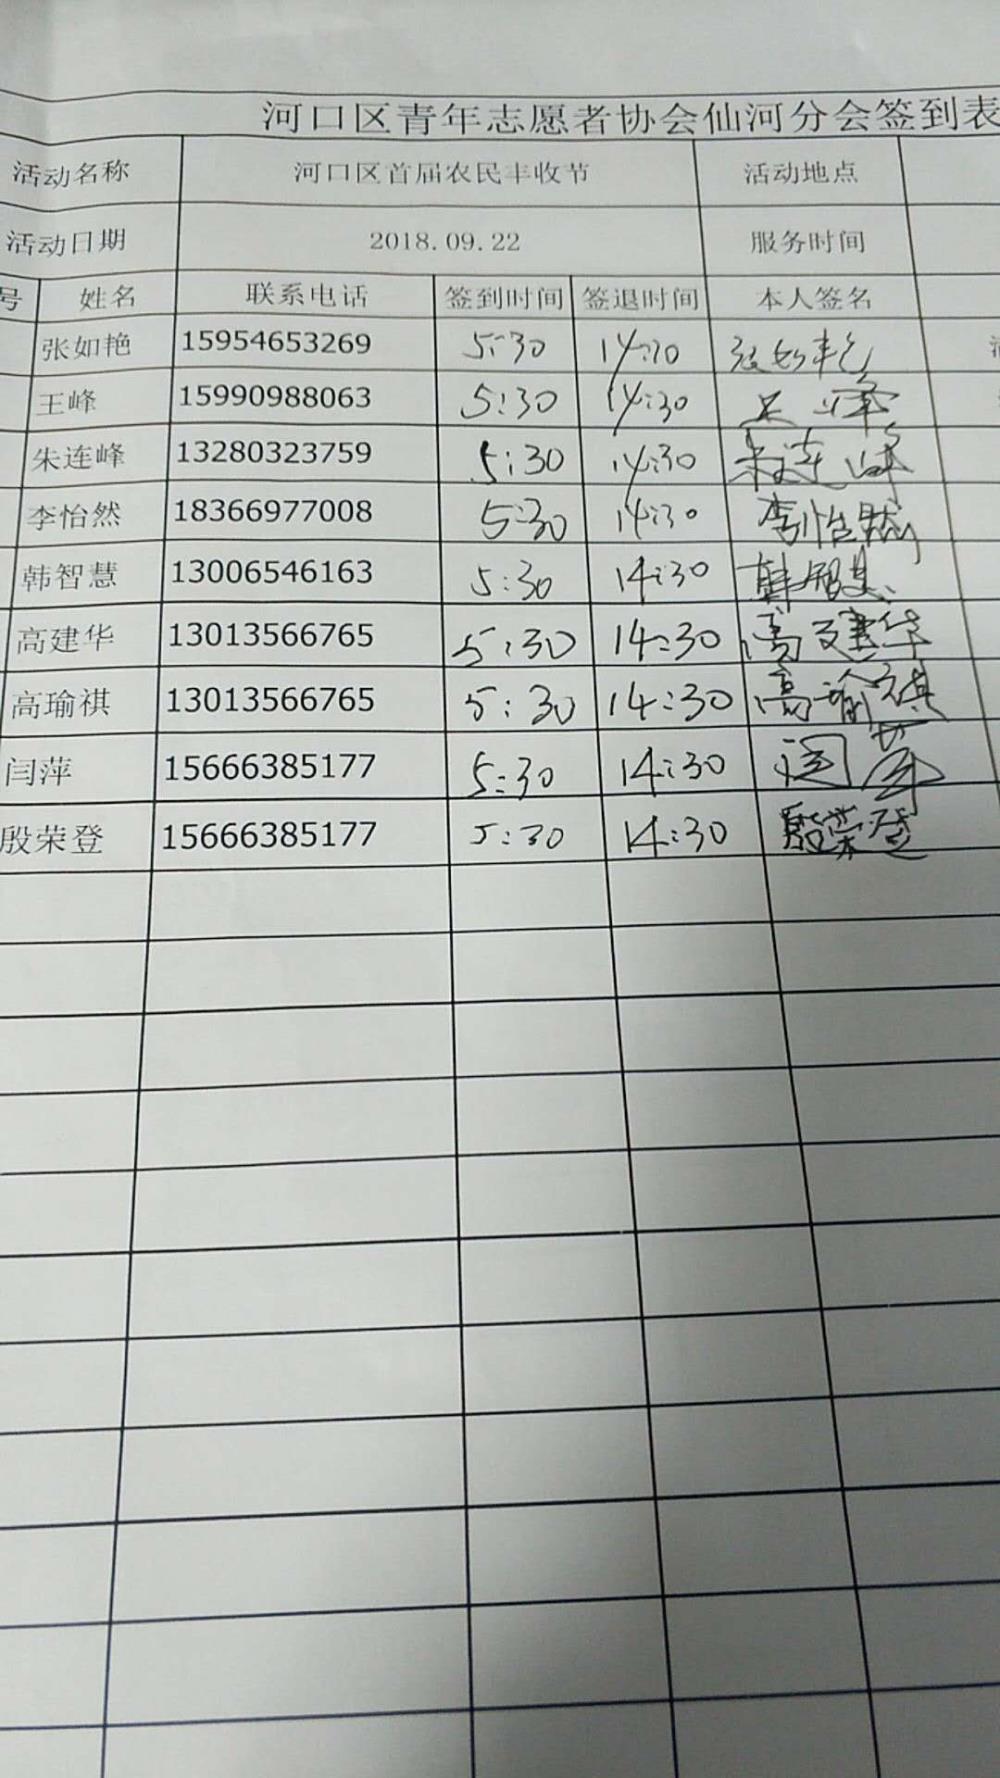 河口区青年志愿者协会仙河分会签到表
活动名称 河口区首届农民丰收节 活动地点
活动日期 2018.09.22 服务时间
号 姓名 联系电话 签到时间 签退时间 本人签名
张如艳 15954653269 5:30 14:30 张如艳
王峰 15990988063 5:30 14:30 王峰
朱连峰 13280323759 5:30 14:30 朱连峰
李怡然 18366977008 5:30 14:30 李怡然
韩智慧 13006546163 5:30 14:30 韩智慧
高建华 13013566765 5:30 14:30 高建华
高瑜祺 13013566765 5:30 14:30 高瑜祺
闫萍 15666385177 5:30 14:30 闫萍
殷荣登 15666385177 5:30 14:30 殷荣登